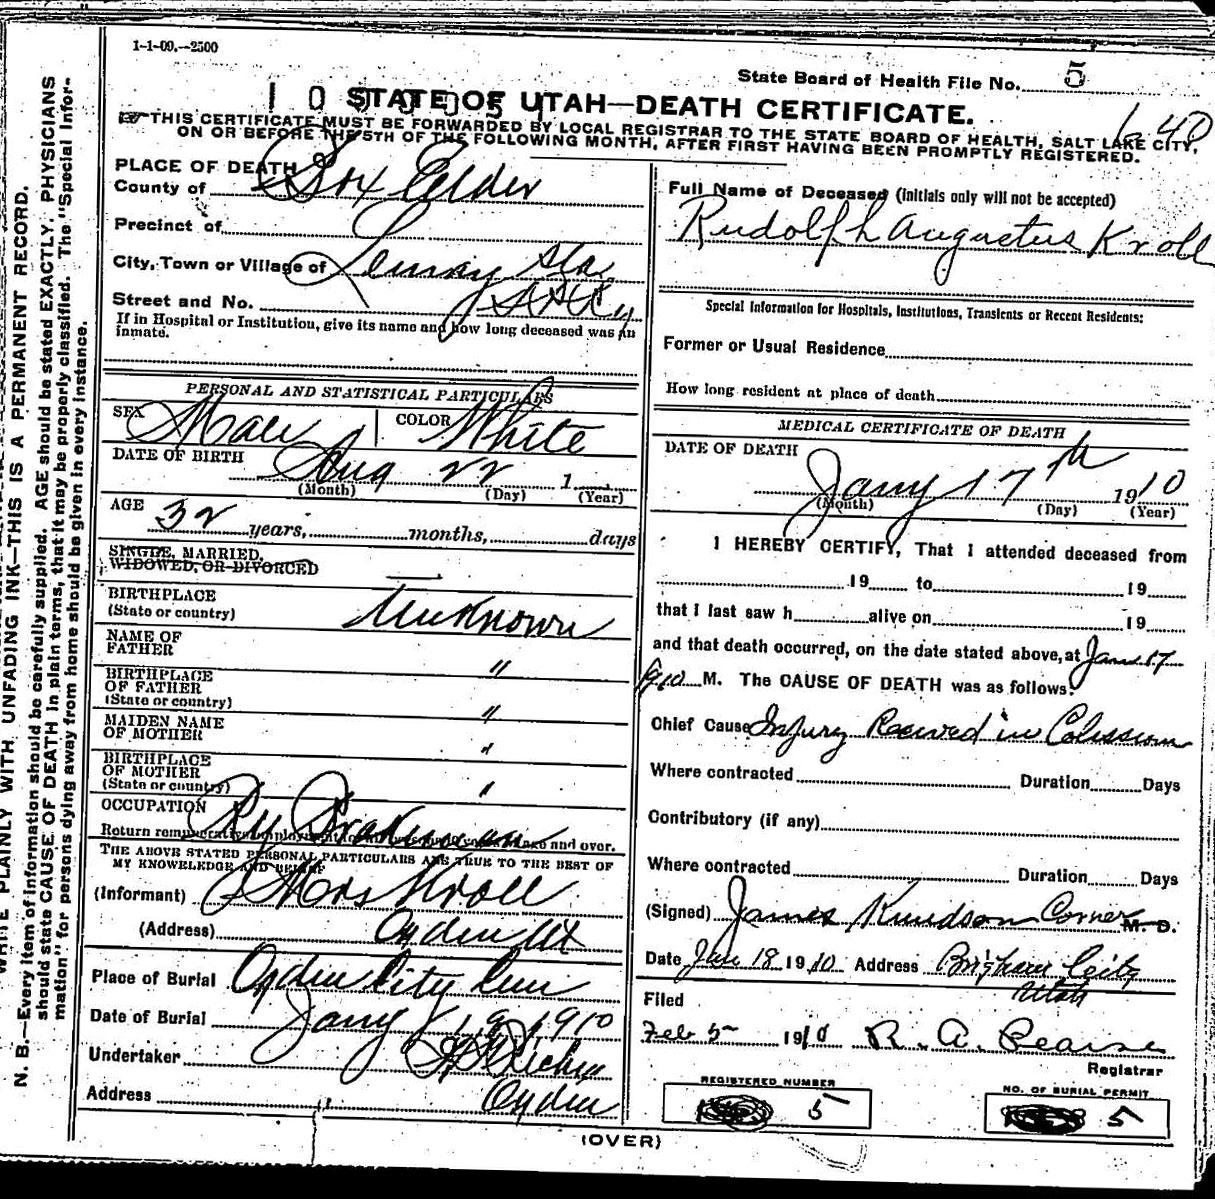 1-1-09.--2500
State Board of Health File No. 5
STATE OF UTAH—DEATH CERTIFICATE.
THIS CERTIFICATE MUST BE FORWARDED BY LOCAL REGISTRAR TO THE STATE BOARD OF HEALTH, SALT LAKE CITY,
ON OR BEFORE THE 5TH OF THE FOLLOWING MONTH, AFTER FIRST HAVING BEEN PROMPTLY REGISTERED.
PLACE OF DEATH
County of Box Elder
Precinct of
City, Town or Village of
Street and No.
If in Hospital or Institution, give its name and how long deceased was an
inmate.
PERSONAL AND STATISTICAL PARTICULARS
SEX Male COLOR White
DATE OF BIRTH Aug 22 1
(Month) (Day) (Year)
AGE 32 years, months, days
SINGLE, MARRIED,
WIDOWED, OR DIVORCED
BIRTHPLACE
(State or country) Unknown
NAME OF
FATHER "
BIRTHPLACE
OF FATHER
(State or country) "
MAIDEN NAME
OF MOTHER "
BIRTHPLACE
OF MOTHER
(State or country) "
OCCUPATION Ry Brakeman
Return remunerative employment and over.
THE ABOVE STATED PERSONAL PARTICULARS ARE TRUE TO THE BEST OF
MY KNOWLEDGE AND BELIEF
(Informant) Mrs Kroll
(Address) Ogden Ut
Place of Burial Ogden City Cem
Date of Burial Jany 19 1910
Undertaker
Address Ogden
Full Name of Deceased (initials only will not be accepted)
Rudolph Augustus Kroll
Special Information for Hospitals, Institutions, Transients or Recent Residents:
Former or Usual Residence
How long resident at place of death
MEDICAL CERTIFICATE OF DEATH
DATE OF DEATH
Jany 17th 1910
(Month) (Day) (Year)
I HEREBY CERTIFY, That I attended deceased from
19 to 19
that I last saw h alive on 19
and that death occurred, on the date stated above, at Jan 17
1910 M. The CAUSE OF DEATH was as follows:
Chief Cause Injury Received in Colission
Where contracted Duration Days
Contributory (if any)
Where contracted Duration Days
(Signed) James Knudson Corner M. D.
Date Jan 18 1910 Address Brigham City
Utah
Filed
Feb 5 1910 R. A. Pearse
Registrar
REGISTERED NUMBER
5
NO. OF BURIAL PERMIT
5
(OVER)
WRITE PLAINLY WITH UNFADING INK—THIS IS A PERMANENT RECORD.
N. B.—Every item of information should be carefully supplied. AGE should be stated EXACTLY. PHYSICIANS
should state CAUSE OF DEATH in plain terms, that it may be properly classified. The "Special Infor-
mation" for persons dying away from home should be given in every instance.